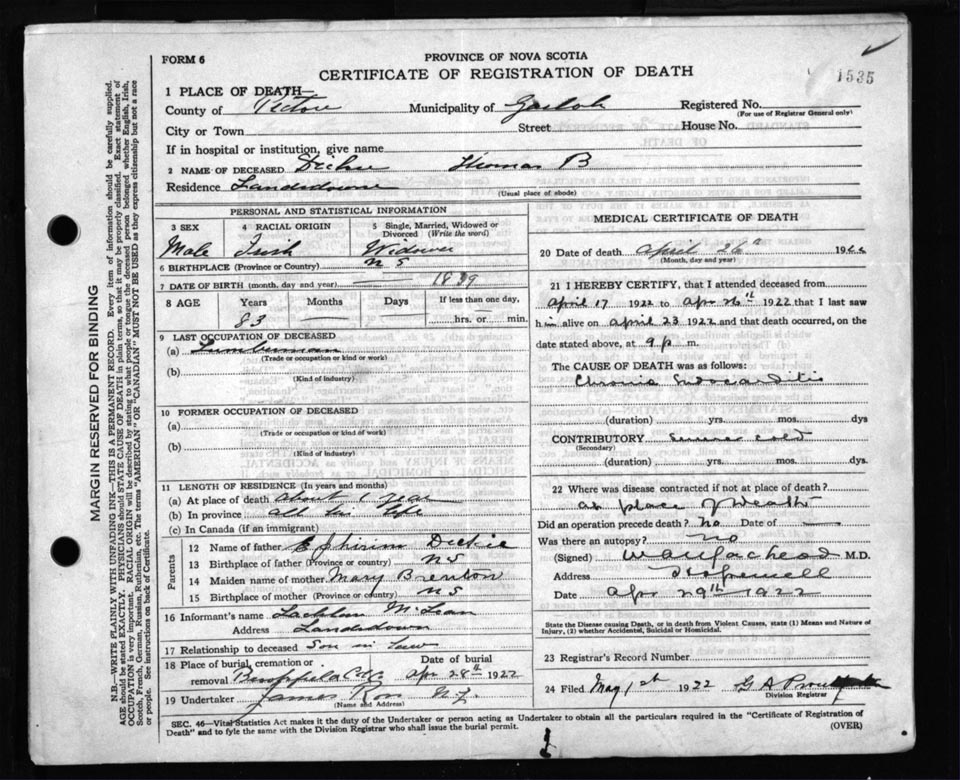 FORM 6
PROVINCE OF NOVA SCOTIA
CERTIFICATE OF REGISTRATION OF DEATH
1535
1 PLACE OF DEATH—
County of Pictou Municipality of Gairloch Registered No.
(For use of Registrar General only)
City or Town Street House No.
If in hospital or institution, give name
2 NAME OF DECEASED Dickie Thomas B
Residence Landsdowne
(Usual place of abode)
PERSONAL AND STATISTICAL INFORMATION
3 SEX 4 RACIAL ORIGIN 5 Single, Married, Widowed or Divorced (Write the word)
Male Irish Widower
6 BIRTHPLACE (Province or Country) N S
7 DATE OF BIRTH (month, day and year) — 1839
8 AGE Years Months Days If less than one day,
83 — — hrs. or min.
9 LAST OCCUPATION OF DECEASED
(a) Lumberman
(Trade or occupation or kind of work)
(b)
(Kind of industry)
10 FORMER OCCUPATION OF DECEASED
(a)
(Trade or occupation or kind of work)
(b)
(Kind of industry)
11 LENGTH OF RESIDENCE (In years and months)
(a) At place of death about 1 year
(b) In province all his life
(c) In Canada (if an immigrant)
Parents
12 Name of father Ephirim Dickie
13 Birthplace of father (Province or country) NS
14 Maiden name of mother Mary Brenton
15 Birthplace of mother (Province or country) NS
16 Informant's name Lachlan McLean
Address Landsdown
17 Relationship to deceased Son in Law
18 Place of burial, cremation or removal Date of burial
Apr 28th 1922
19 Undertaker James Ross N.G.
(Name and Address)
MEDICAL CERTIFICATE OF DEATH
20 Date of death April 26th 1922
(Month, day and year)
21 I HEREBY CERTIFY, that I attended deceased from
April 17 1922 to Apr 26th 1922 that I last saw
him alive on April 23 1922 and that death occurred, on the
date stated above, at 9 p m.
The CAUSE OF DEATH was as follows:
Chronic Endocarditis
(duration) yrs. mos. dys
CONTRIBUTORY severe cold
(Secondary)
(duration) yrs. mos. dys.
22 Where was disease contracted if not at place of death?
at place of death
Did an operation precede death? no Date of —
Was there an autopsy? no
(Signed) M.D.
Address Hopewell
Date Apr 29th 1922
State the Disease causing Death, or in death from Violent Causes, state (1) Means and Nature of
Injury, (2) whether Accidental, Suicidal or Homicidal.
23 Registrar's Record Number
24 Filed May 1st 1922 G A
Division Registrar
SEC. 46—Vital Statistics Act makes it the duty of the Undertaker or person acting as Undertaker to obtain all the particulars required in the "Certificate of Registration of
Death" and to fyle the same with the Division Registrar who shall issue the burial permit. (OVER)
MARGIN RESERVED FOR BINDING
N.B.—WRITE PLAINLY WITH UNFADING INK—THIS IS A PERMANENT RECORD. Every item of information should be carefully supplied.
AGE should be stated EXACTLY. PHYSICIANS should STATE CAUSE OF DEATH in plain terms, so that it may be properly classified. Exact statement of
OCCUPATION is very important. RACIAL ORIGIN will be described by stating to what people or tongue the deceased person belonged whether English, Irish,
Scotch, French, German, Russian, Ruthenian, etc. The terms "AMERICAN" OR "CANADIAN" MUST NOT BE USED as they express citizenship but not a race
or people. See instructions on back of Certificate.